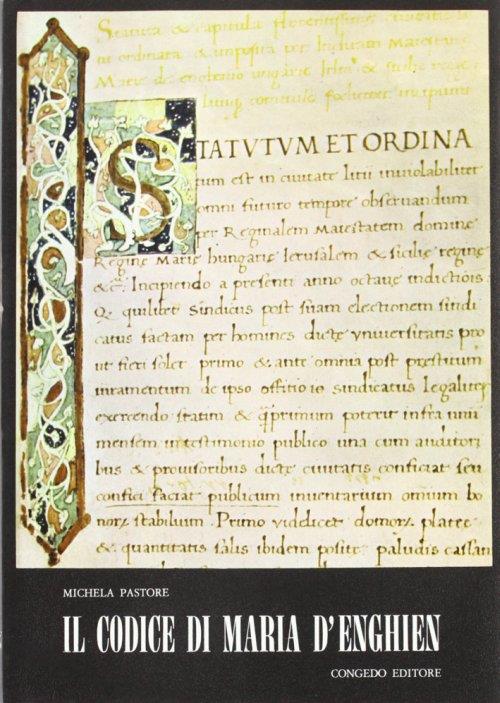 Statuta & capitula florentissime
ordinata & imposita per
Marie de enghenio ungarie & sicilie
feliciter incipiunt
STATVTVM ET ORDINA
tum est in ciuitate litii inuiolabiliter
omni futuro tempore obseruandum
per Reginalem Maiestatem domine
Regine Marie hungarie Ierusalem & sicilie regine
&c̃ Incipiendo a presenti anno octaue indictiõis
Q quilibet Sindicus post suam electionem sindi
catus factam per homines dicte vniuersitatis pro
ut fieri solet primo & ante omnia post prestitum
iuramentum de ipso offitio sindicatus legaliter
exercendo statim & q̃primum poterit infra unũ
mensem in testimonio publico una cum auditori
bus & prouisoribus dicte ciuitatis conficiat seu
confici faciat publicum inuentarium omnium bo
norꝝ stabilium. Primo videlicet domorꝝ platee
& quantitatis salis ibidem posite paludis cassan
MICHELA PASTORE
IL CODICE DI MARIA D'ENGHIEN
CONGEDO EDITORE